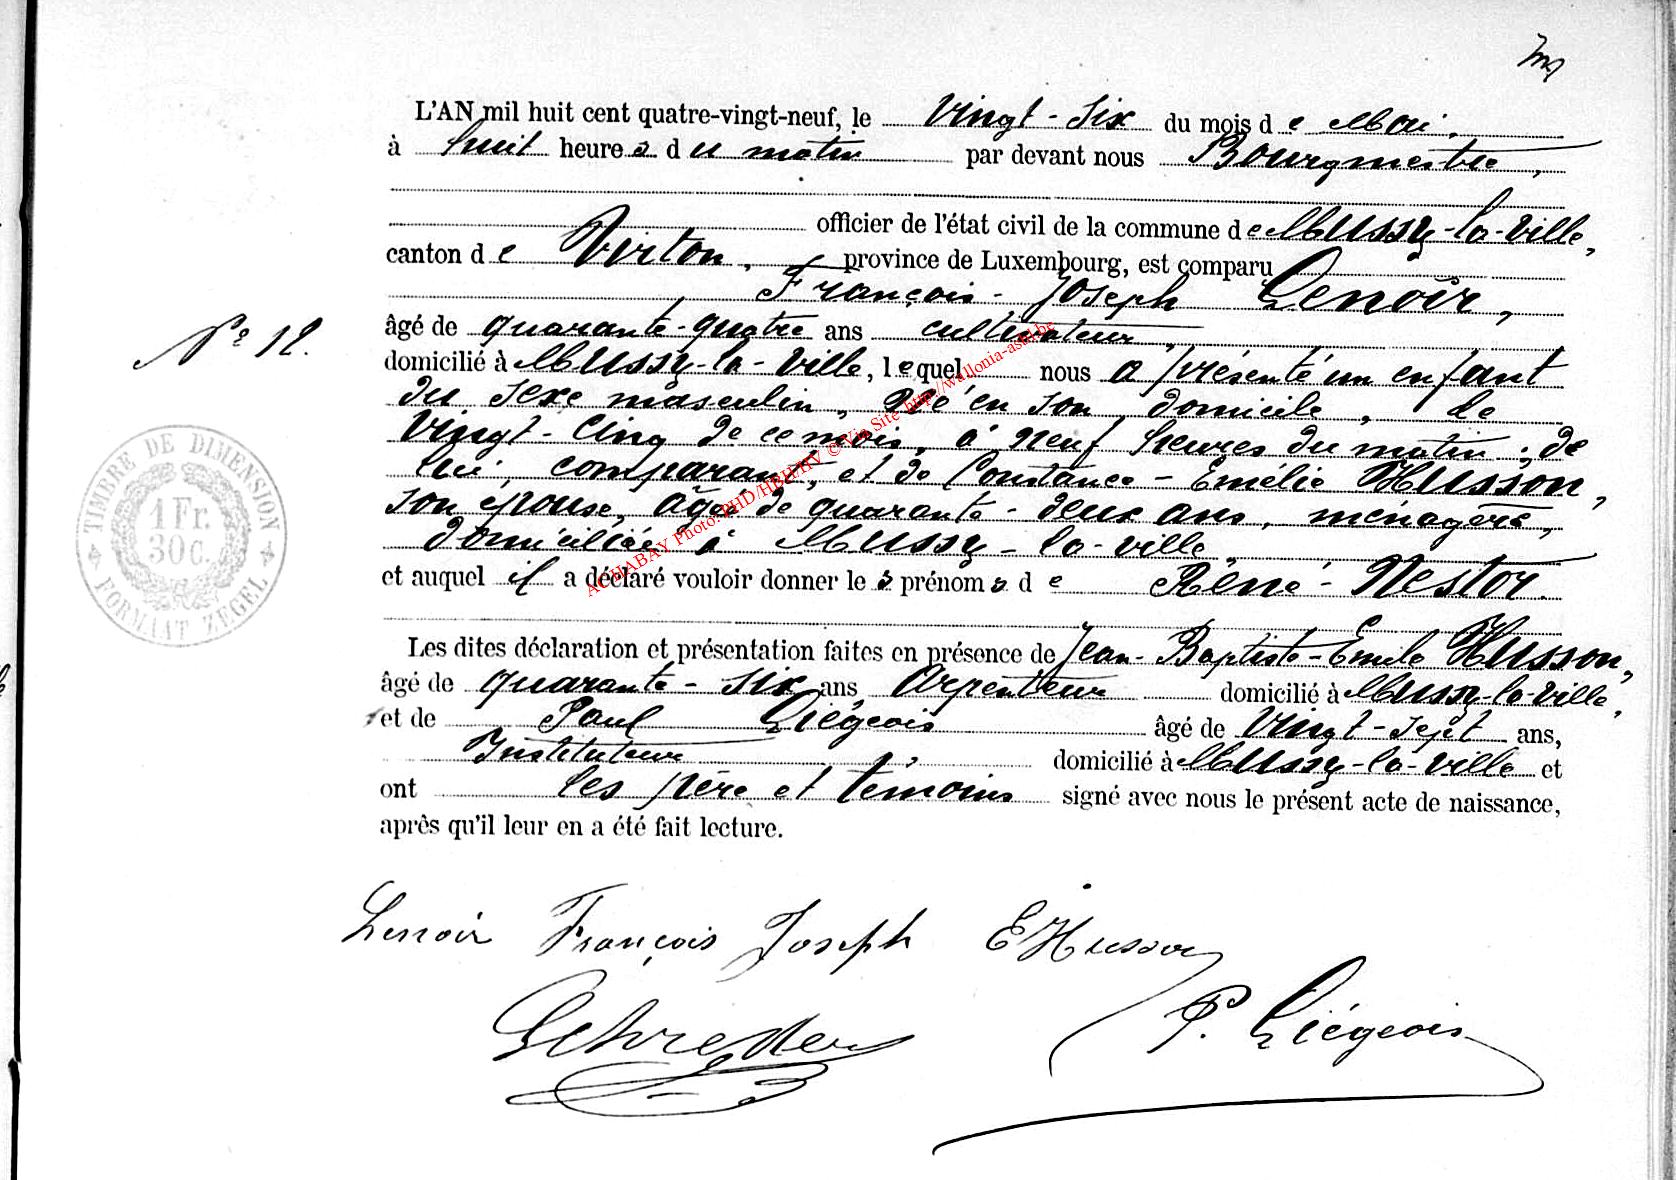 L'AN mil huit cent quatre-vingt-neuf, le vingt-six du mois de Mai,
à huit heures du matin par devant nous Bourgmestre,
officier de l'état civil de la commune de Mussy-la-Ville,
canton de Virton, province de Luxembourg, est comparu
François-Joseph Lenoir,
N° 12.
âgé de quarante-quatre ans cultivateur,
domicilié à Mussy-la-Ville, lequel nous a présenté un enfant
du sexe masculin, né en son domicile, le
vingt-cinq de ce mois, à neuf heures du matin, de
lui, comparant, et de Constance-Emélie Husson,
son épouse, âgée de quarante-deux ans, ménagère,
domiciliée à Mussy-la-ville,
et auquel il a déclaré vouloir donner les prénoms de Réné-Nestor.
Les dites déclaration et présentation faites en présence de Jean-Baptiste-Emile Husson,
âgé de quarante-six ans, Arpenteur domicilié à Mussy-la-ville,
et de Paul Liégeois âgé de vingt-sept ans,
Instituteur, domicilié à Mussy-la-ville et
ont les père et témoins signé avec nous le présent acte de naissance,
après qu'il leur en a été fait lecture.
TIMBRE DE DIMENSION
1 Fr.
30 C.
FORMAAT ZEGEL
ACHABAY Photo: PHD/HBH/HV © Via Site http://wallonia-asbl.be
Lenoir François Joseph EHusson
P. Liégeois